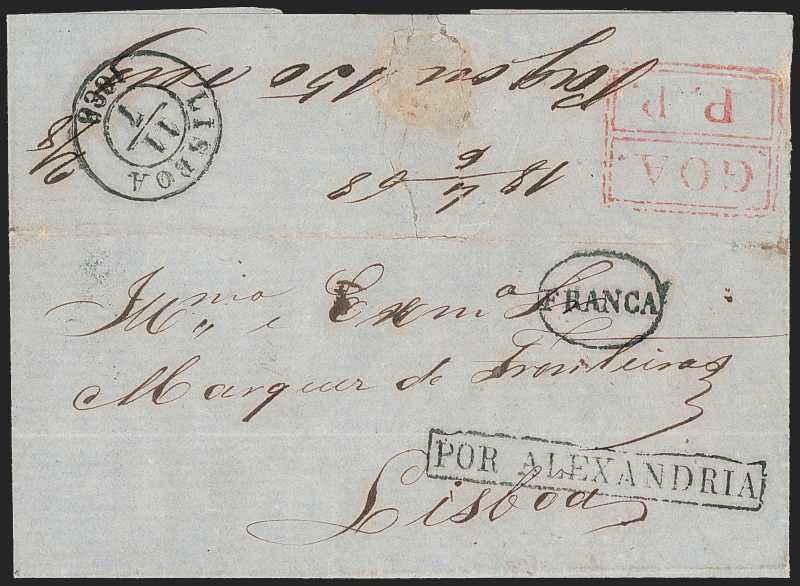 Pagou 150
18 4/6 68
P.P.
GOA
LISBOA
11/7
1868
Illmo e Exmo Sr
FRANCA
Marquez de Fronteira
POR ALEXANDRIA
Lisboa